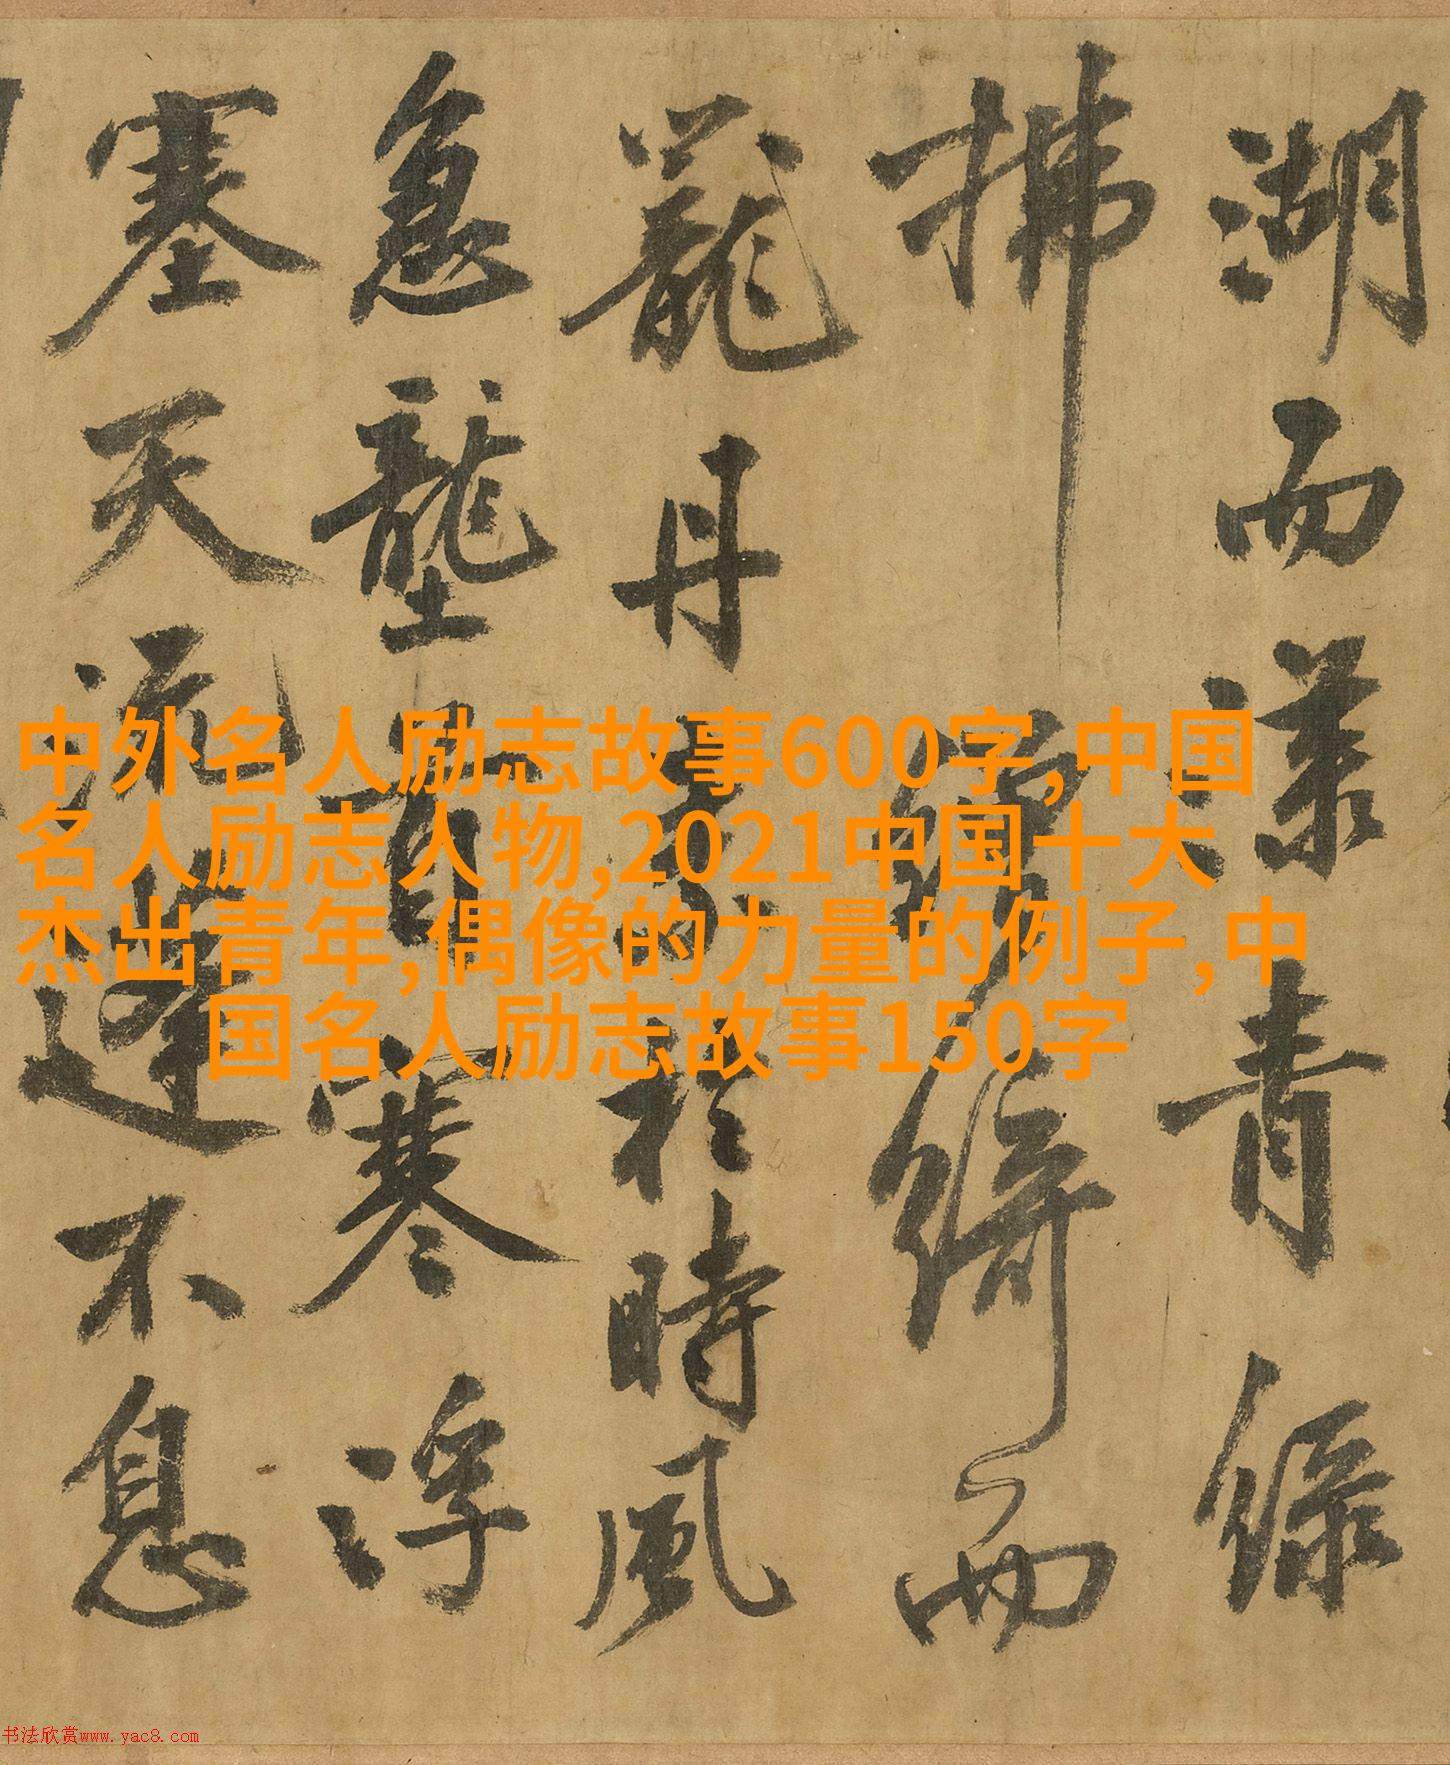 湖而漾青綠
拂綺而
丹於時風
急壟首寒浮
塞天流不息
中外名人励志故事600字,中国
名人励志人物,2021中国十大
杰出青年,偶像的力量的例子,中
国名人励志故事150字
书法欣赏www.yac8.com